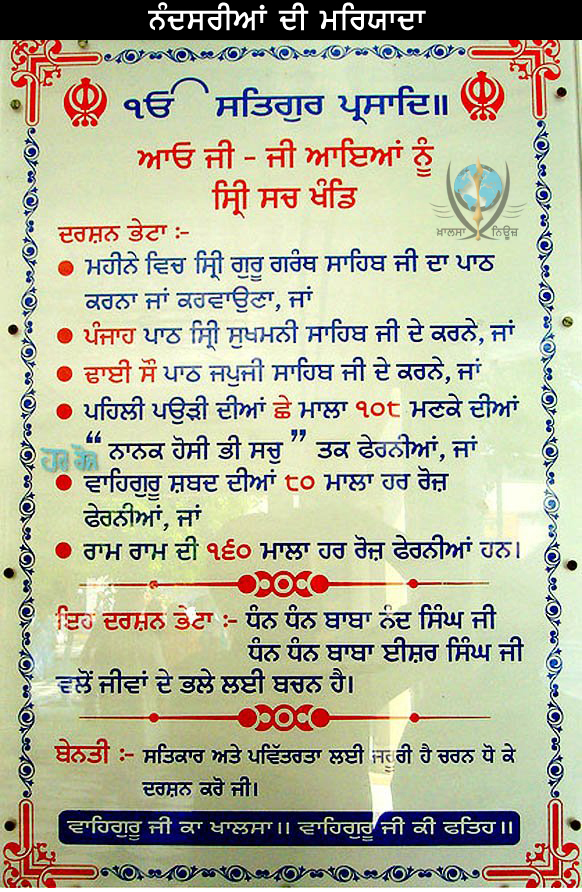 ਨੰਦਸਰੀਆਂ ਦੀ ਮਰਿਯਾਦਾ
ੴ ਸਤਿਗੁਰ ਪ੍ਰਸਾਦਿ॥
ਆਓ ਜੀ - ਜੀ ਆਇਆਂ ਨੂੰ
ਸ੍ਰੀ ਸਚ ਖੰਡਿ
ਖ਼ਾਲਸਾ ਨਿਊਜ਼
ਦਰਸ਼ਨ ਭੇਟਾ :-
• ਮਹੀਨੇ ਵਿਚ ਸ੍ਰੀ ਗੁਰੂ ਗਰੰਥ ਸਾਹਿਬ ਜੀ ਦਾ ਪਾਠ
ਕਰਨਾ ਜਾਂ ਕਰਵਾਉਣਾ, ਜਾਂ
• ਪੰਜਾਹ ਪਾਠ ਸ੍ਰੀ ਸੁਖਮਨੀ ਸਾਹਿਬ ਜੀ ਦੇ ਕਰਨੇ, ਜਾਂ
• ਢਾਈ ਸੌ ਪਾਠ ਜਪੁਜੀ ਸਾਹਿਬ ਜੀ ਦੇ ਕਰਨੇ, ਜਾਂ
• ਪਹਿਲੀ ਪਉੜੀ ਦੀਆਂ ਛੇ ਮਾਲਾ ੧੦੮ ਮਣਕੇ ਦੀਆਂ
ਹਰ ਰੋਜ਼ “ ਨਾਨਕ ਹੋਸੀ ਭੀ ਸਚੁ ” ਤਕ ਫੇਰਨੀਆਂ, ਜਾਂ
• ਵਾਹਿਗੁਰੂ ਸ਼ਬਦ ਦੀਆਂ ੮੦ ਮਾਲਾ ਹਰ ਰੋਜ਼
ਫੇਰਨੀਆਂ, ਜਾਂ
• ਰਾਮ ਰਾਮ ਦੀ ੧੬੦ ਮਾਲਾ ਹਰ ਰੋਜ਼ ਫੇਰਨੀਆਂ ਹਨ।
ਇਹ ਦਰਸ਼ਨ ਭੇਟਾ :- ਧੰਨ ਧੰਨ ਬਾਬਾ ਨੰਦ ਸਿੰਘ ਜੀ
ਧੰਨ ਧੰਨ ਬਾਬਾ ਈਸ਼ਰ ਸਿੰਘ ਜੀ
ਵਲੋਂ ਜੀਵਾਂ ਦੇ ਭਲੇ ਲਈ ਬਚਨ ਹੈ।
ਬੇਨਤੀ :- ਸਤਿਕਾਰ ਅਤੇ ਪਵਿੱਤਰਤਾ ਲਈ ਜ਼ਰੂਰੀ ਹੈ ਚਰਨ ਧੋ ਕੇ
ਦਰਸ਼ਨ ਕਰੋ ਜੀ।
ਵਾਹਿਗੁਰੂ ਜੀ ਕਾ ਖਾਲਸਾ॥ ਵਾਹਿਗੁਰੂ ਜੀ ਕੀ ਫਤਿਹ॥